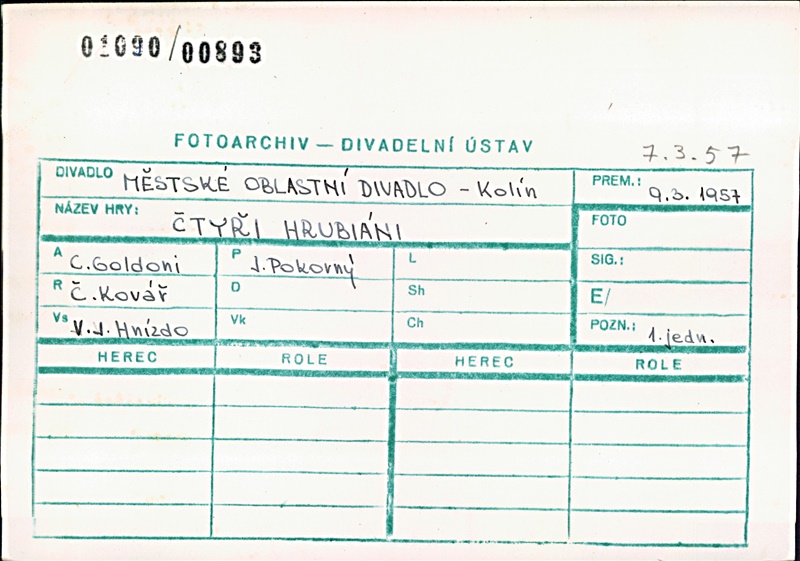 01090/00893
FOTOARCHIV — DIVADELNÍ ÚSTAV
7.3.57
DIVADLO MĚSTSKÉ OBLASTNÍ DIVADLO - Kolín
PREM.: 9.3. 1957
NÁZEV HRY: ČTYŘI HRUBIÁNI
FOTO
A C. Goldoni
P J. Pokorný
L
SIG.:
R Č. Kovář
D
Sh
E/
Vs V. J. Hnízdo
Vk
Ch
POZN.: 1. jedn.
HEREC ROLE HEREC ROLE